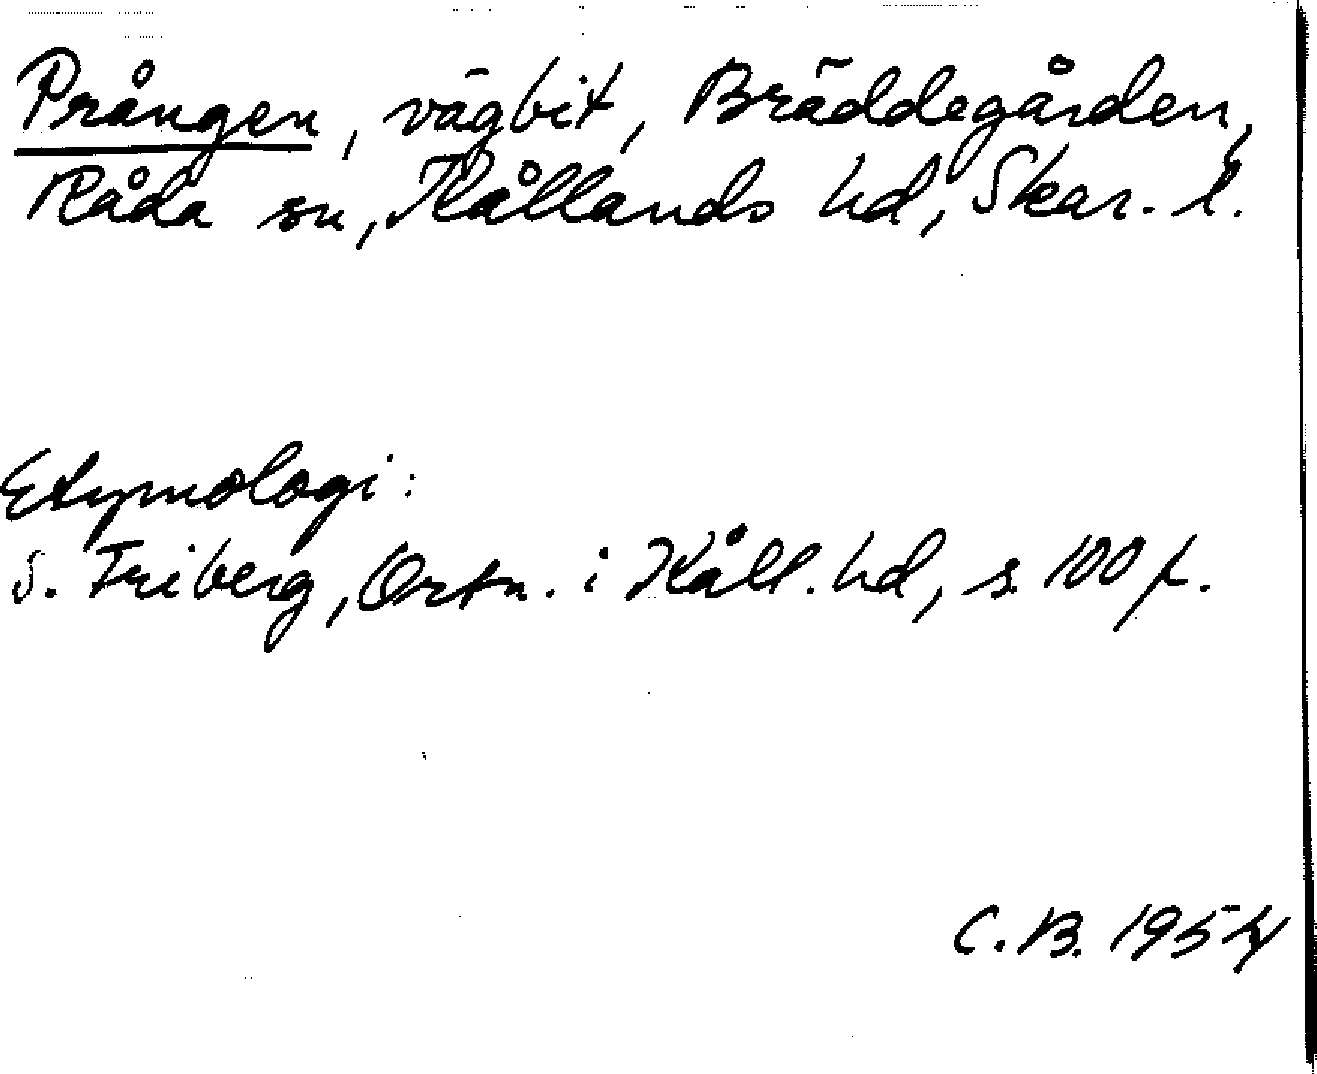 Prången, vägbit, Bräddegården,
Råda sn, Kållands hd, Skar. l.
Etymologi:
S. Friberg, Ortn. i Kåll. hd, s. 100 f.
C.B. 1954